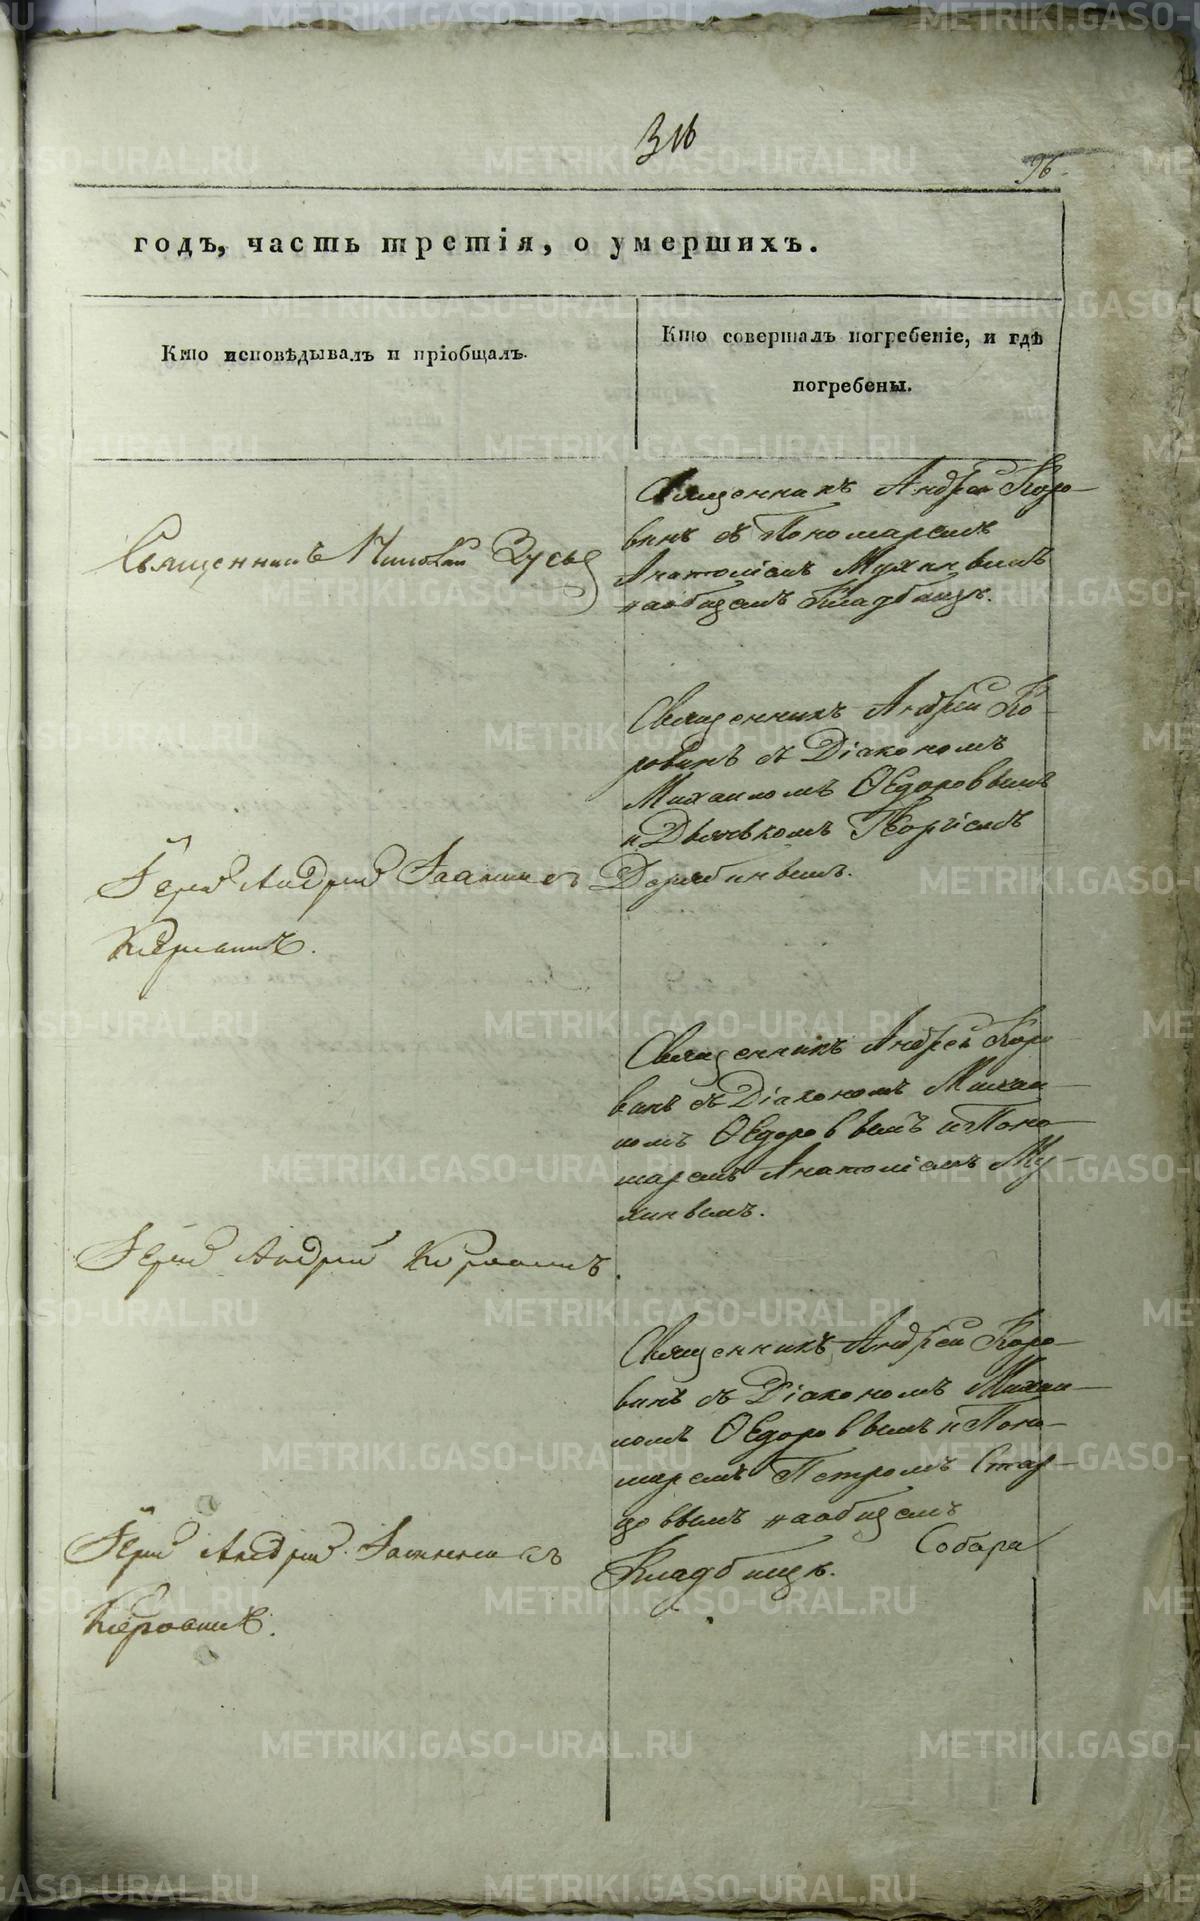 96.
годъ, часть третія, о умершихъ.
Кто исповѣдывалъ и пріобщалъ.
Кто совершалъ погребеніе, и гдѣ
погребены.
Священникъ Николай
Священникъ Андрей Коро-
винъ съ Пономаремъ
Анатоліемъ Мухинымъ
на общемъ кладбищѣ.
Іерей Андрей Іоанновъ
Коровинъ.
Священникъ Андрей Ко-
ровинъ съ Діакономъ
Михаиломъ Ѳедоровымъ
и Дьячкомъ Георгіемъ
Дерябинымъ.
Іерей Андрей Коровинъ.
Священникъ Андрей Коро
винъ съ Діакономъ Михаи-
ломъ Ѳедоровымъ и Поно-
маремъ Анатоліемъ Му-
хинымъ.
Іерей Андрей Іоанновъ
Коровинъ.
Священникъ Андрей Коро-
винъ съ Діакономъ Михаи-
ломъ Ѳедоровымъ и Поно-
маремъ Петромъ
на общемъ
Кладбищѣ.
Собора
METRIKI.GASO-URAL.RU